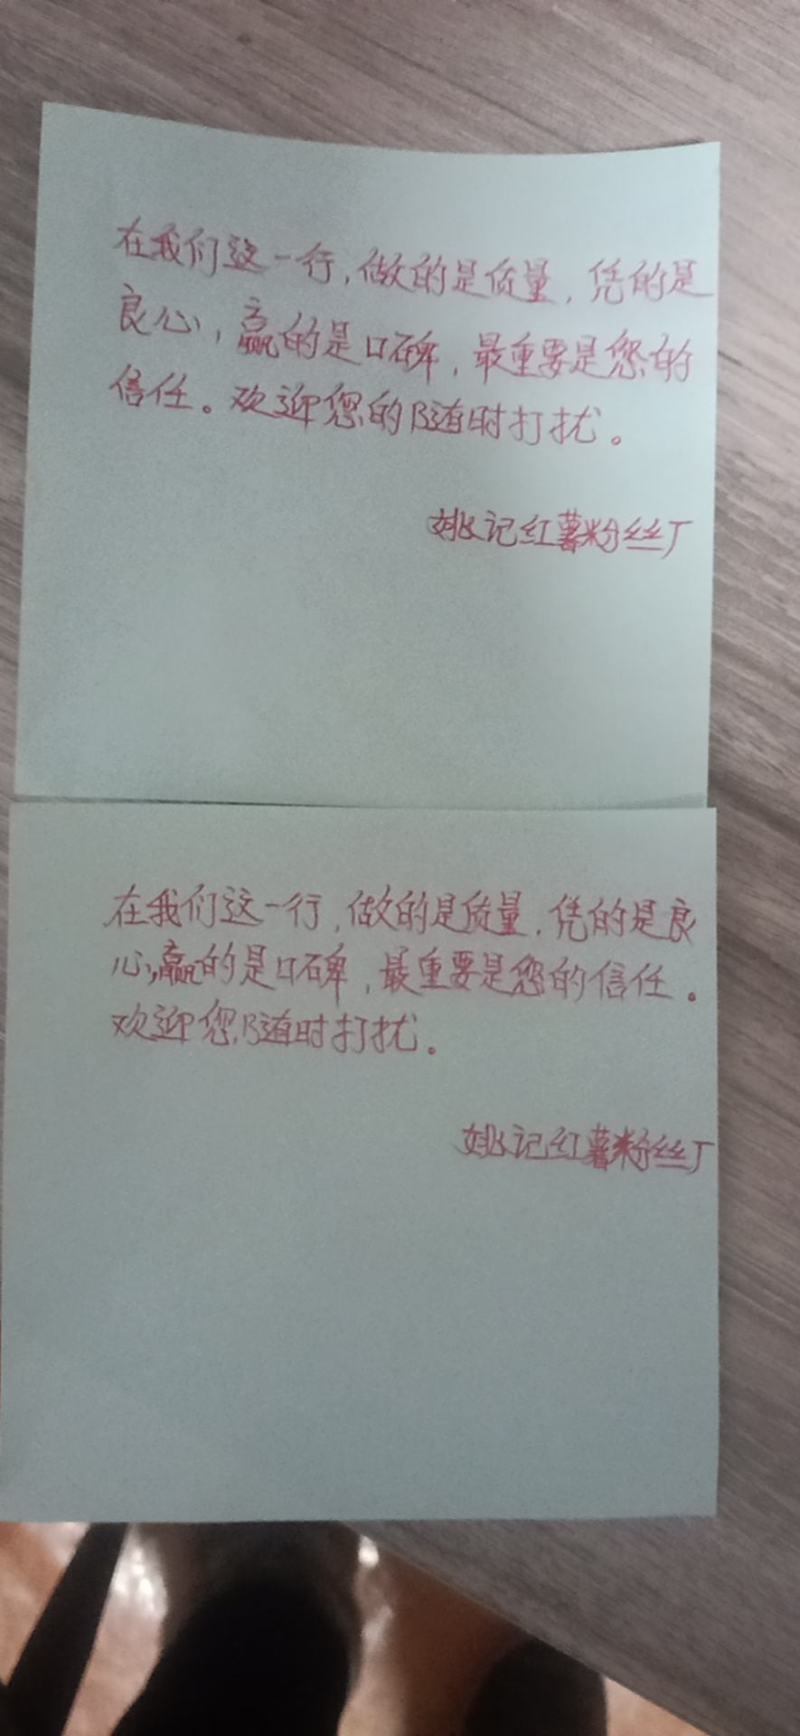 在我们这一行,做的是质量,凭的是
良心,赢的是口碑,最重要是您的
信任。欢迎您的随时打扰。
姚记红薯粉丝厂
在我们这一行,做的是质量,凭的是良
心,赢的是口碑,最重要是您的信任。
欢迎您随时打扰。
姚记红薯粉丝厂